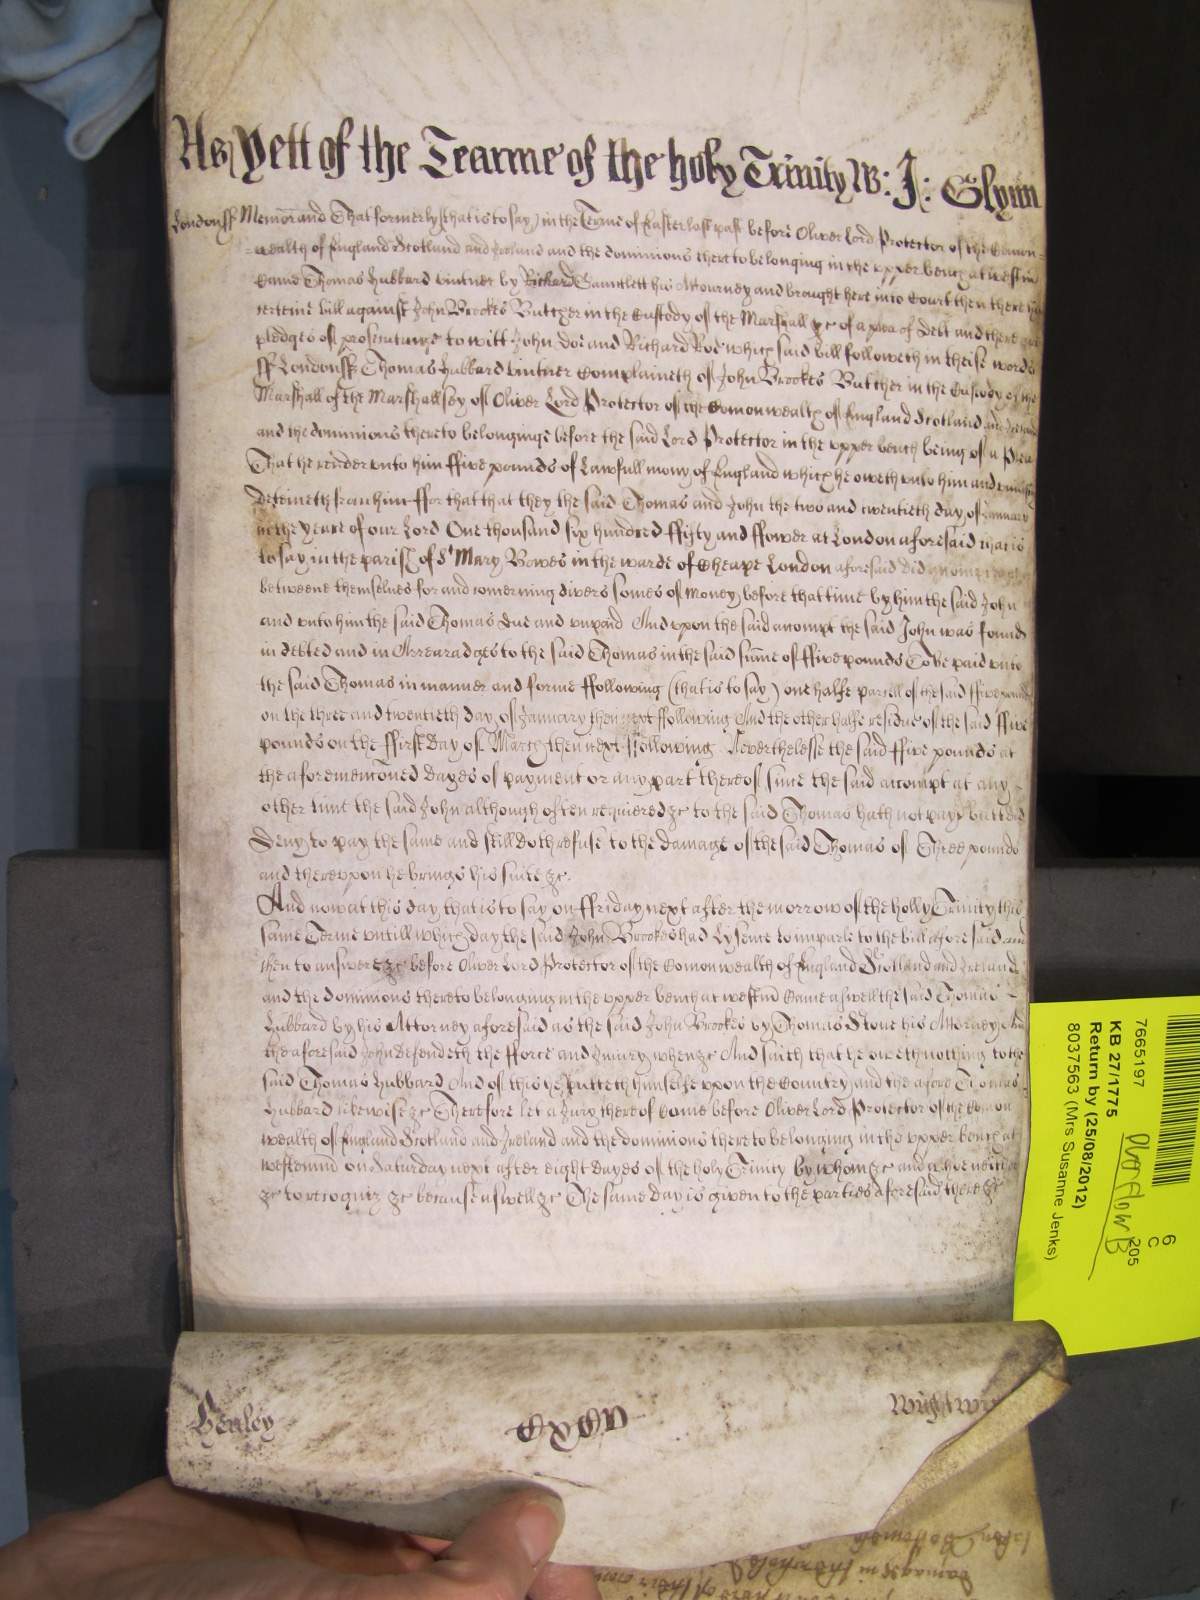 As Yett of the Tearme of the holy Trinity W: J: Glynn
London ss Memorand That formerly (that is to say) in the Terme of Easter last past before Oliver Lord Protector of the Comon=
=wealth of England Scotland and Ireland and the dominions thereto belonging in the vpper bench at westm
Came Thomas Hubbard vintner by Richard Gauntlett his Attourney and brought here into Court then there his
certeine bill against John Brookes Butcher in the Custody of the Marshall &c of a plea of Debt and there are
pledges of prosecutinge to witt John Doe and Richard Roe which said bill followeth in theise words
ss London ss Thomas Hubbard vintner Complaineth of John Brookes Butcher in the Custody of the
Marshall of the Marshallsey of Oliver Lord Protector of the Comonwealth of England Scotland and Ireland
and the dominions thereto belonginge before the said Lord Protector in the vpper bench being of a Plea
That he render vnto him ffive pounds of Lawfull mony of England which he oweth vnto him and
Deteineth from him ffor that that they the said Thomas and John the two and twentieth day of January
in the yeare of our Lord One thousand six hundred ffifty and ffower at London aforesaid that is
to say in the parish of St Mary Bowes in the warde of Cheape London aforesaid did
betweene themselues for and concerning divers somes of Money before that time by him the said John
and vnto him the said Thomas due and vnpaid And vpon the said accompt the said John was found
in debted and in Arrearadges to the said Thomas in the said sume of ffive pounds To be paid vnto
the said Thomas in manner and forme ffollowing (that is to say) one halfe parcell of the said ffive pounds
on the three and twentieth day of January then next ffollowing And the other halfe residue of the said ffive
pounds on the ffirst Day of March then next ffollowing Neverthelesse the said ffive pounds at
the aforementioned dayes of payment or any part thereof since the said accompt at any
other time the said John although often requiered &c to the said Thomas hath not payd but did
Deny to pay the same and still doth refuse to the damage of the said Thomas of Three pounds
and therevpon he brings his suite &c.
And now at this day that is to say on ffriday next after the morrow of the holly Trinity this
same Terme vntill which day the said John Brookes had Lycence to imparle to the bill afore said and
then to answere &c before Oliver Lord Protector of the Comonwealth of England Scotland and Ireland
and the dominions thereto belonging in the vpper bench at westm Came aswell the said Thomas
Hubbard by his Attorney aforesaid as the said John Brookes by Thomas Stone his Attorney And
the aforesaid John defendeth the fforce and Iniury when &c And saith that he oweth nothing to the
said Thomas Hubbard And of this he putteth himselfe vpon the Country and the afore Thomas
Hubbard likewise &c Therefore let a Jury thereof Come before Oliver Lord Protector of the Comon
wealth of England Scotland and Ireland and the dominions thereto belonging in the vpper bench at
westm on Saturday next after eight dayes of the holy Trinity by whom &c and who neither
&c to recogniz &c because aswell &c The same day is given to the parties aforesaid there &c
Henley
Oxon
Wightwi
7665197
KB 27/1775
Return by (25/08/2012)
8037563 (Mrs Susanne Jenks)
6
C
205